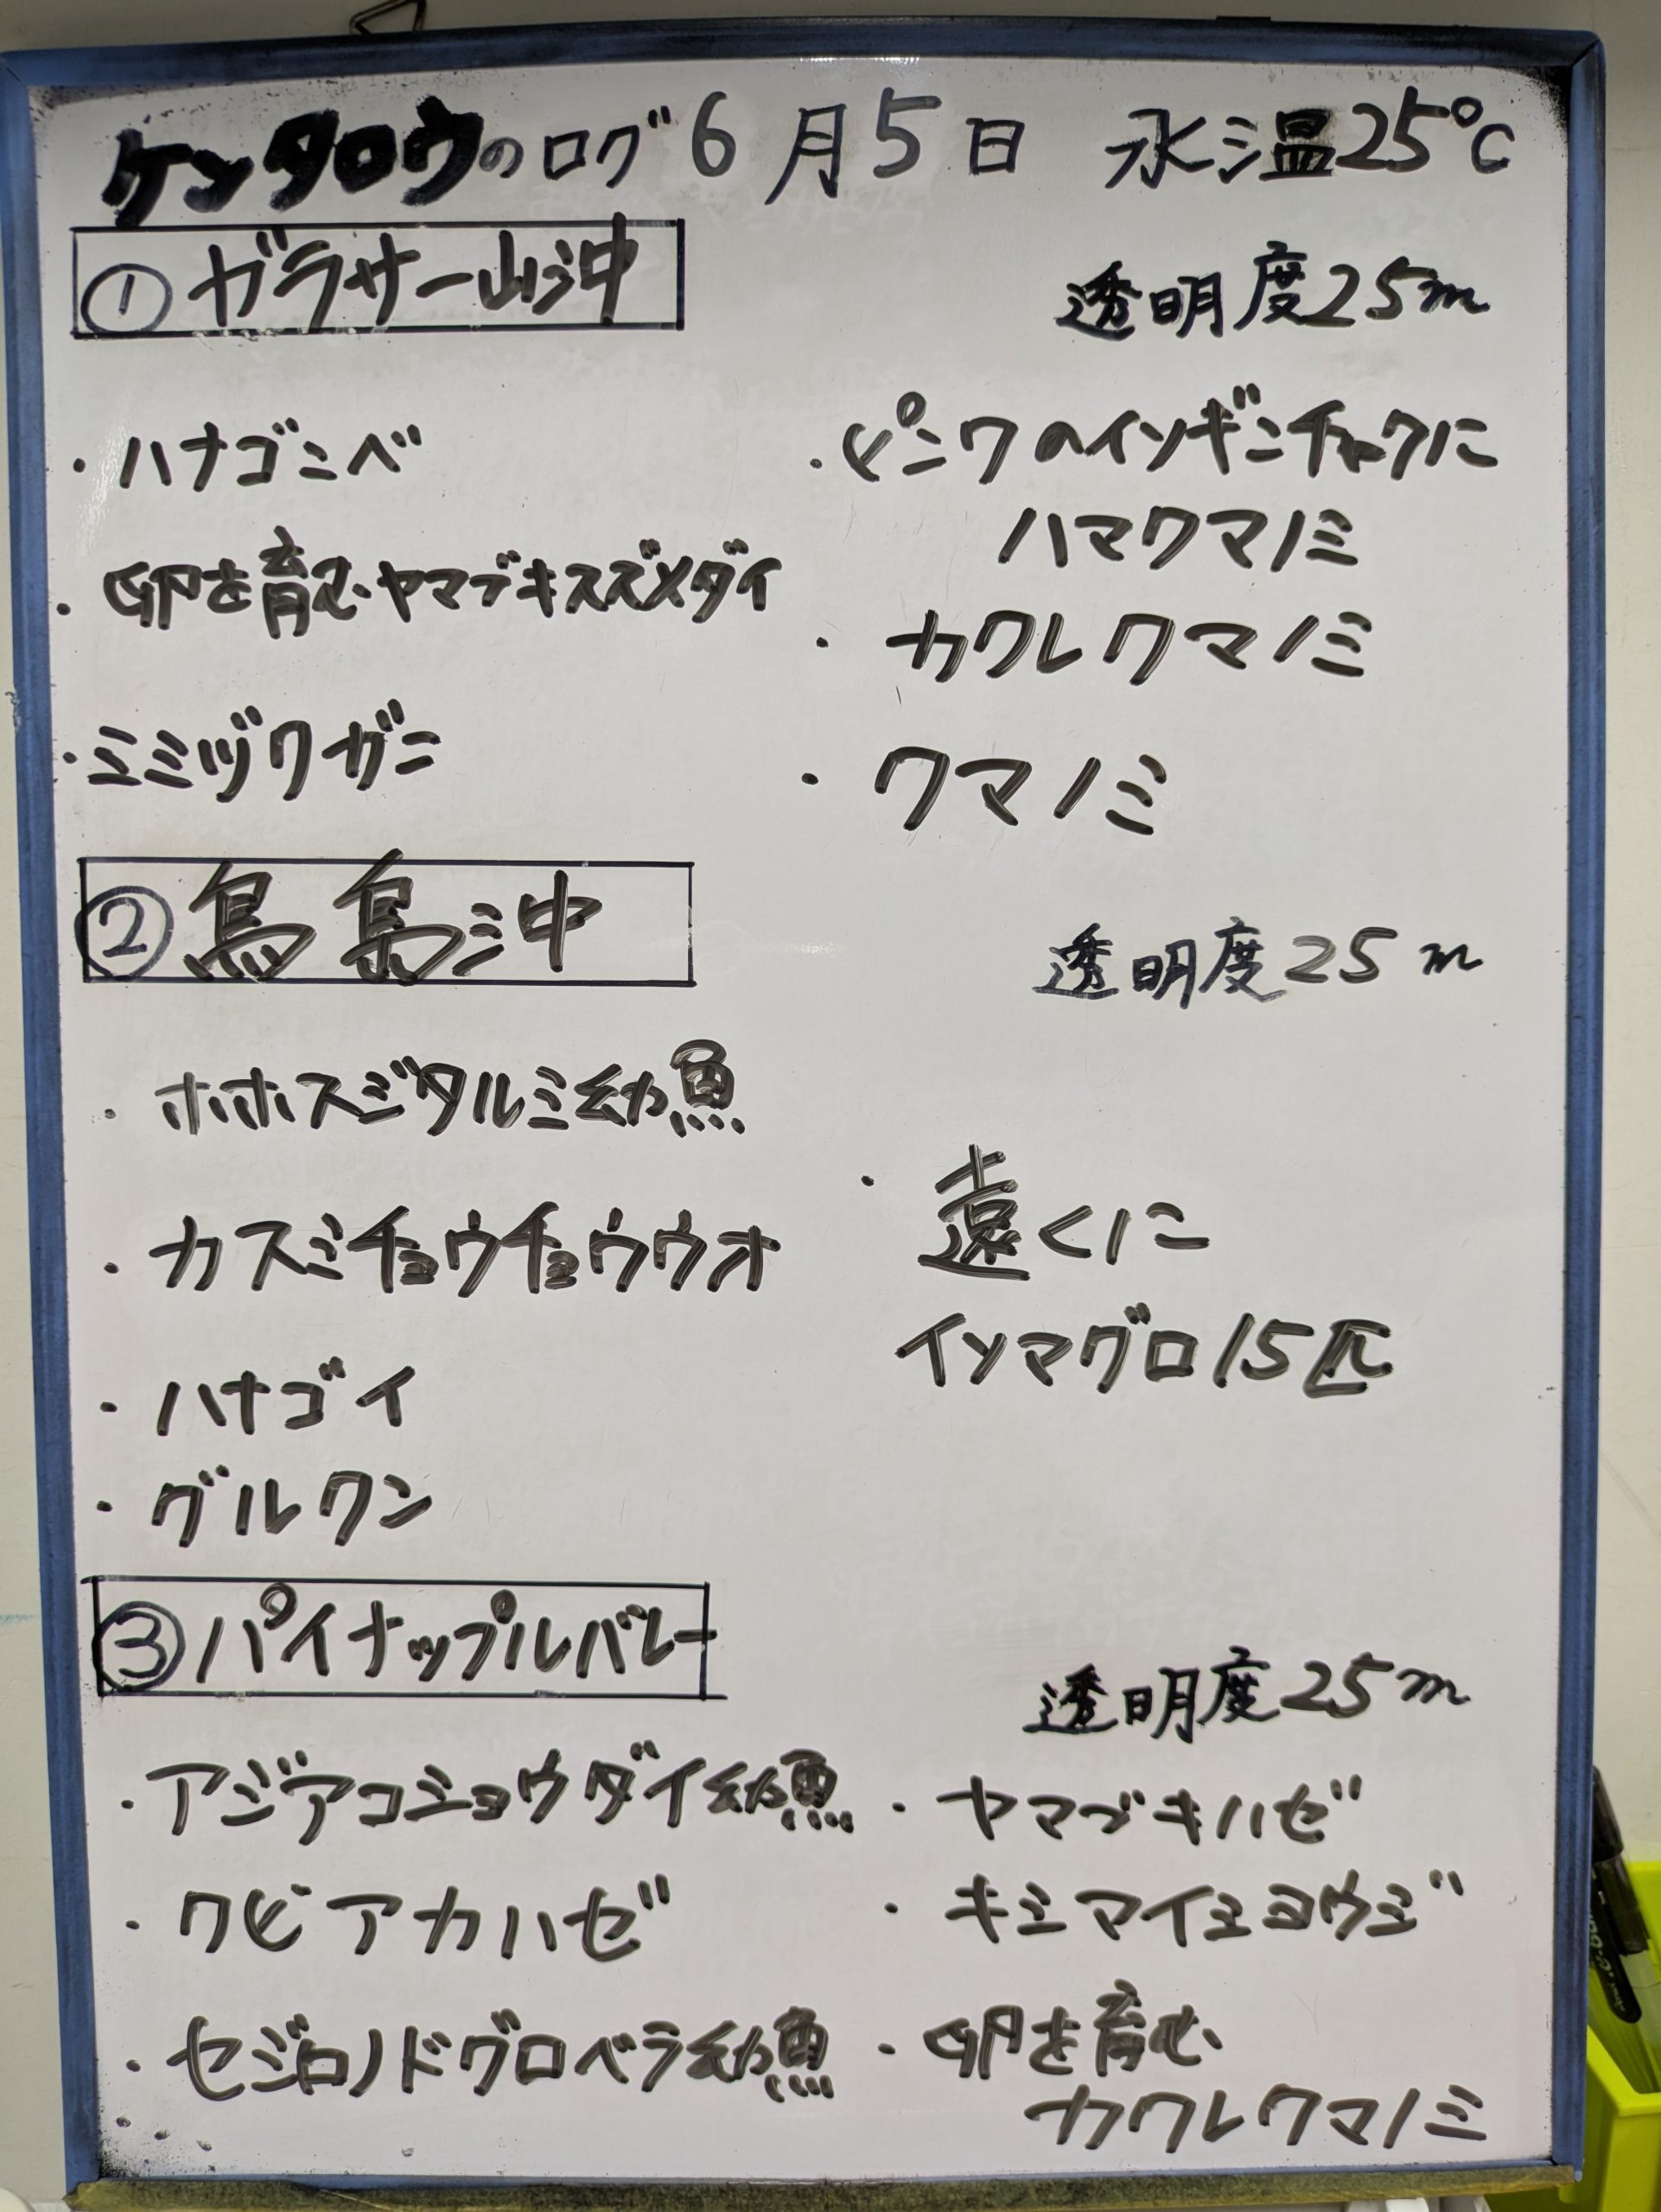 ケンタロウのログ 6月5日 水温25℃
①ガラサー山沖
透明度25m
・ハナゴンベ
・卵を育む ヤマブキスズメダイ
・ミミヅクガニ
・ピンクのイソギンチャクに
ハマクマノミ
・カクレクマノミ
・クマノミ
②鳥島沖
透明度25m
・ホホスジタルミ幼魚
・カスミチョウチョウウオ
・ハナゴイ
・グルクン
・遠くに
イソマグロ15匹
③パイナップルバレー
透明度25m
・アジアコショウダイ幼魚
・クビアカハゼ
・セジロノドグロベラ幼魚
・ヤマブキハゼ
・キシマイシヨウジ
・卵を育む
カクレクマノミ